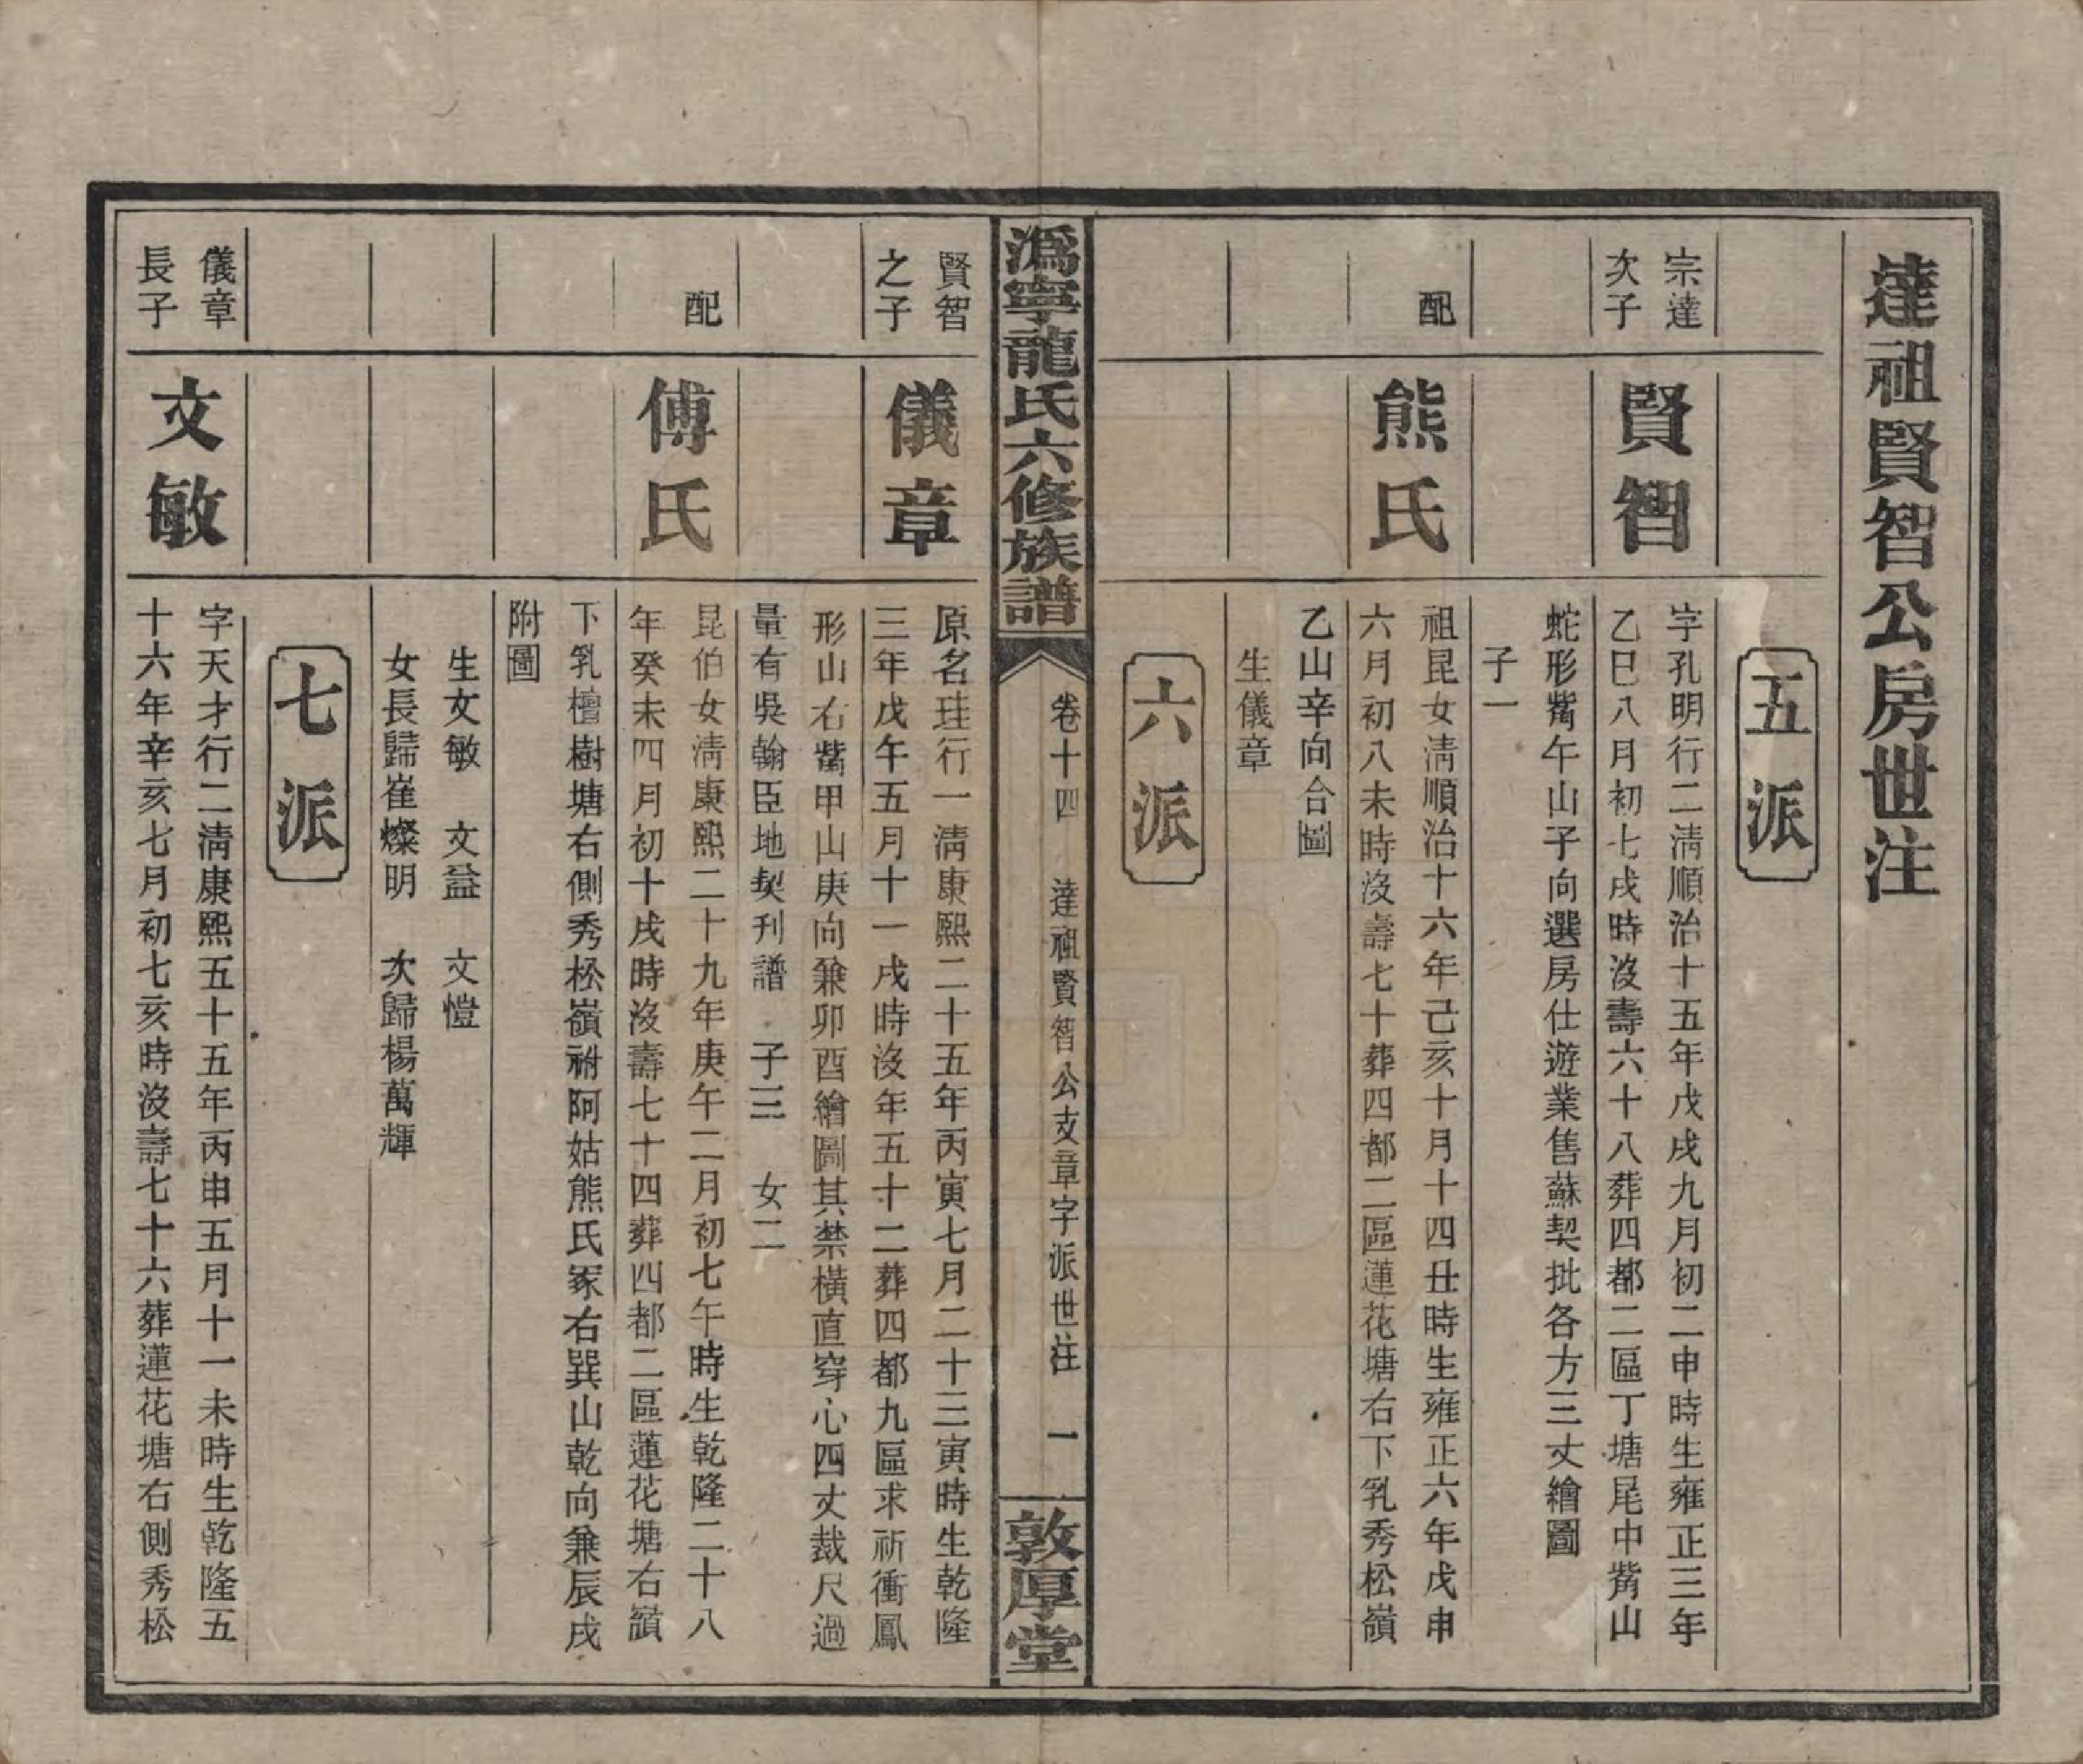 達祖賢智公房世注
五派
宗達
次子
賢智
字孔明行二淸順治十五年戊戌九月初二申時生雍正三年
乙巳八月初七戌時沒壽六十八葬四都二區丁塘尾中觜山
蛇形觜午山子向選房仕遊業售蘇契批各方三丈繪圖
子一
配
熊氏
祖昆女淸順治十六年己亥十月十四丑時生雍正六年戊申
六月初八未時沒壽七十葬四都二區蓮花塘右下乳秀松嶺
乙山辛向合圖
生儀章
六派
溈寧龍氏六修族譜
卷十四
達祖賢智公支章字派世注
一
敦厚堂
賢智
之子
儀章
原名珪行一淸康熙二十五年丙寅七月二十三寅時生乾隆
三年戊午五月十一戌時沒年五十二葬四都九區求祈衝鳳
形山右觜甲山庚向兼卯酉繪圖其禁橫直穿心四丈裁尺過
量有吳翰臣地契刊譜 子三 女二
配
傅氏
昆伯女淸康熙二十九年庚午二月初七午時生乾隆二十八
年癸未四月初十戌時沒壽七十四葬四都二區蓮花塘右嶺
下乳檀樹塘右側秀松嶺祔阿姑熊氏冢右巽山乾向兼辰戌
附圖
生文敏 文益 文愷
女長歸崔燦明 次歸楊萬輝
七派
儀章
長子
文敏
字天才行二淸康熙五十五年丙申五月十一未時生乾隆五
十六年辛亥七月初七亥時沒壽七十六葬蓮花塘右側秀松